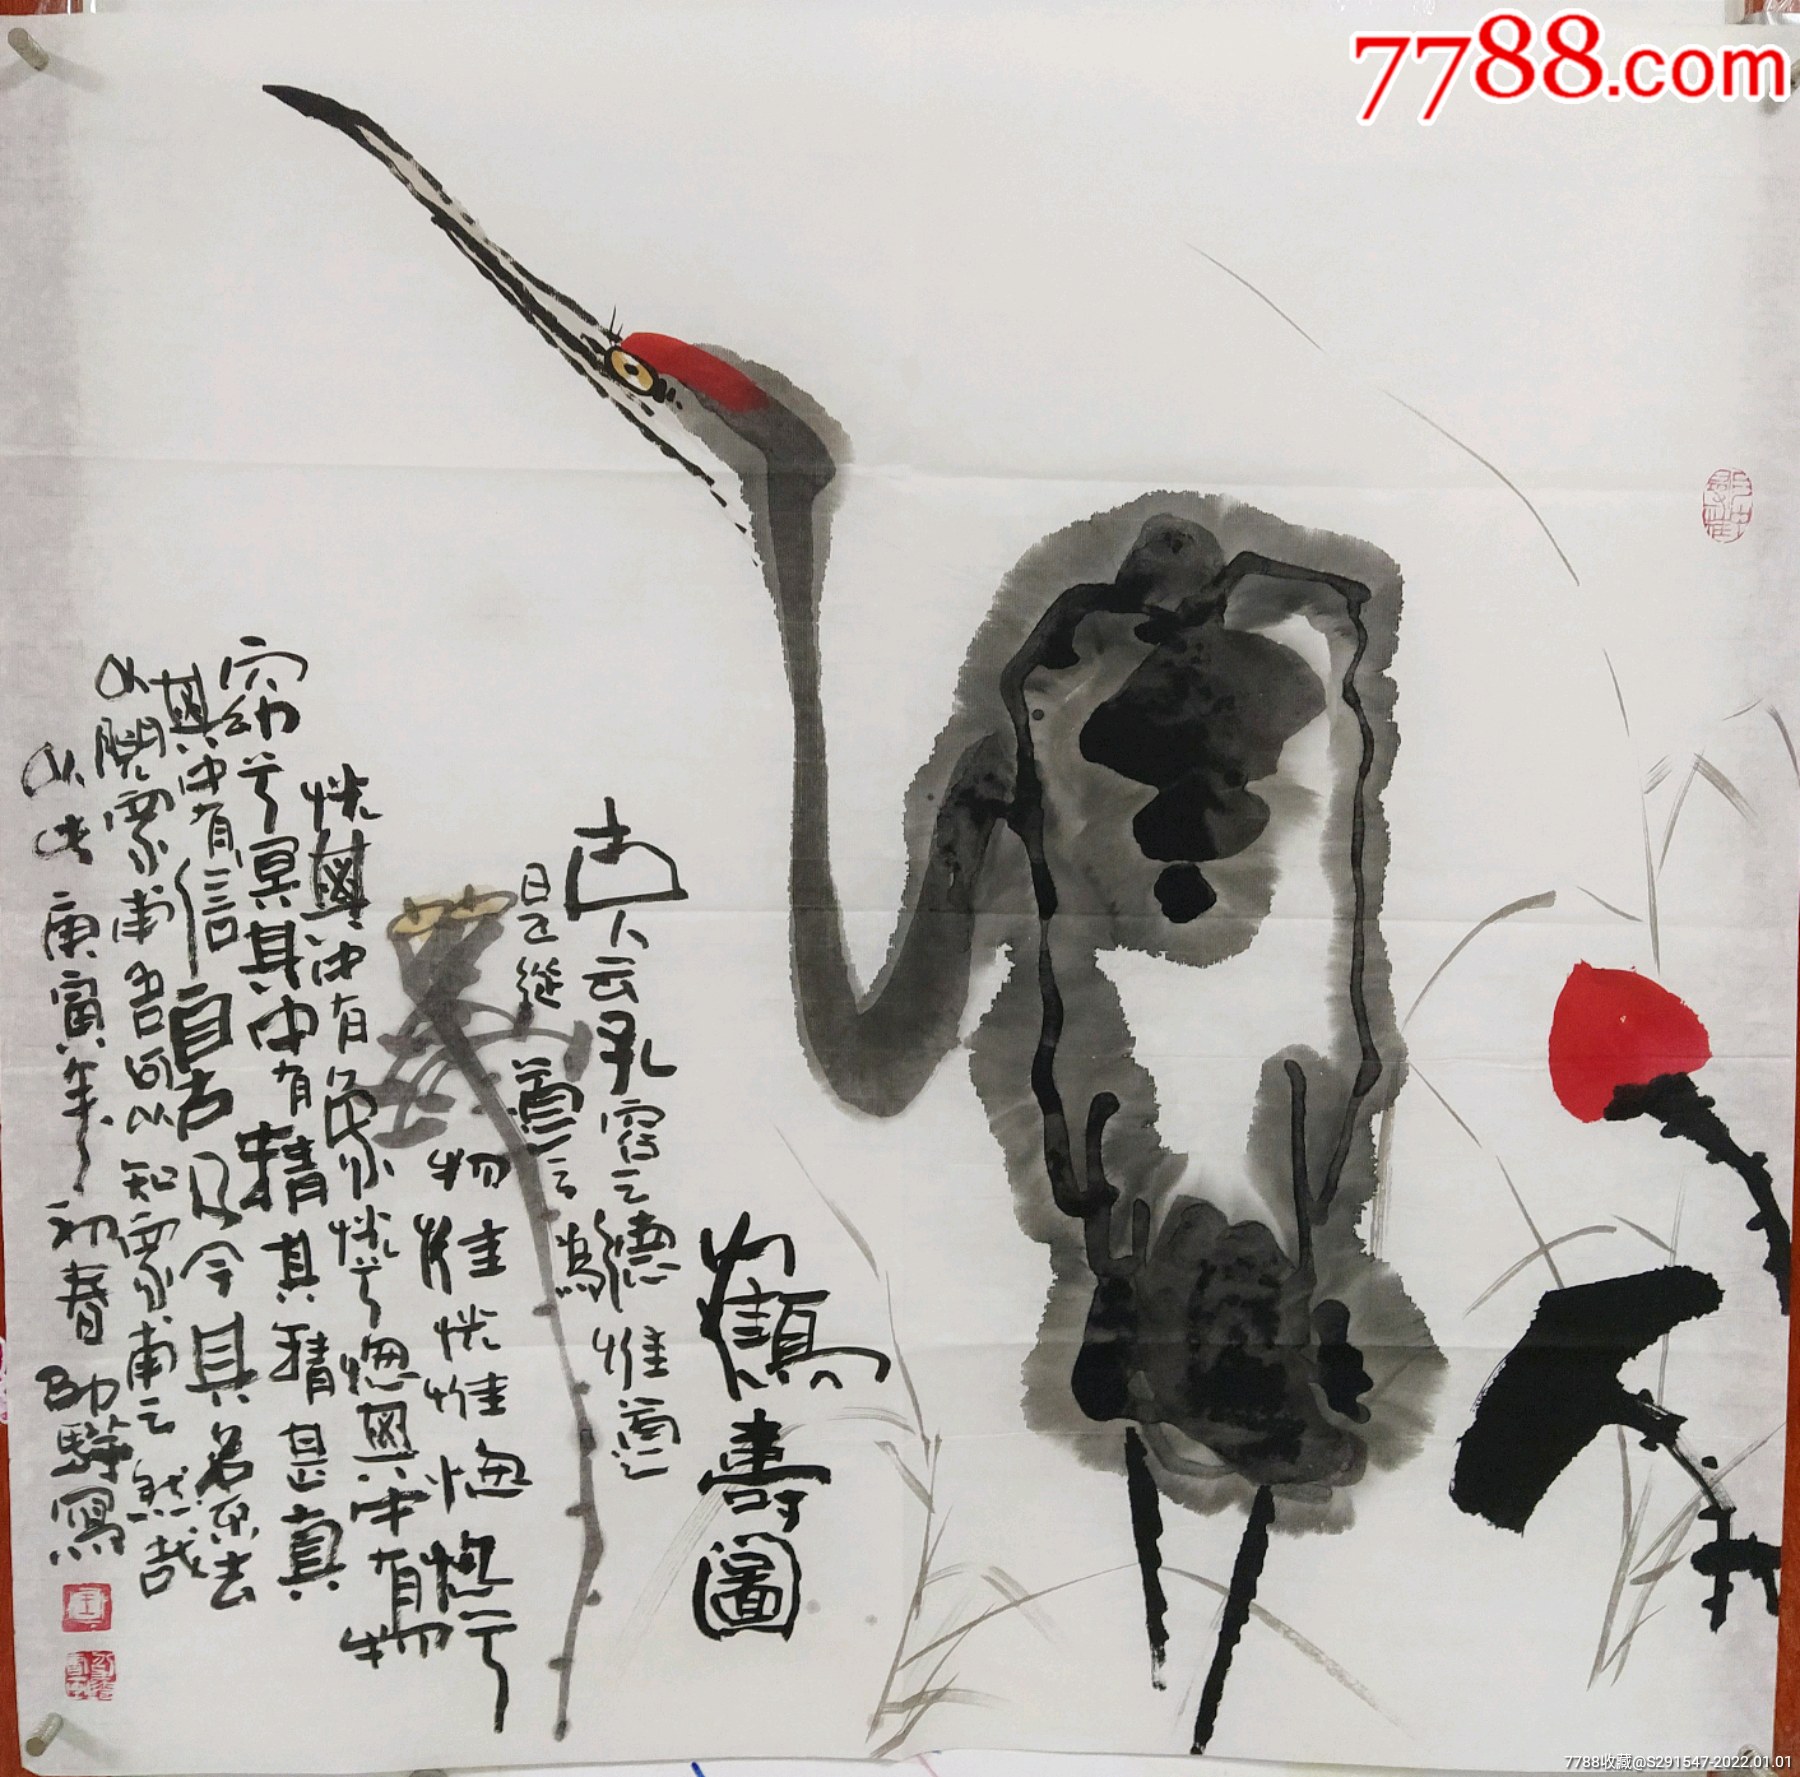 7788.com
鶴壽圖
古人云孔容之德惟道
是從道之為
物惟恍惟惚惚兮
恍其中有象恍兮惚其中有物
窈兮冥其中有精其精甚真
其中有信自古及今其名不去
以閱眾甫吾何以知眾甫之然哉
以此庚寅年初春寫
7788收藏@S291547-2022.01.01